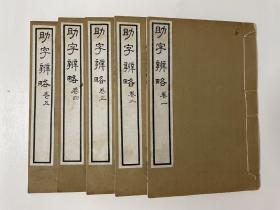 助字辨略 卷一
助字辨略 卷二
助字辨略 卷三
助字辨略 卷四
助字辨略 卷五